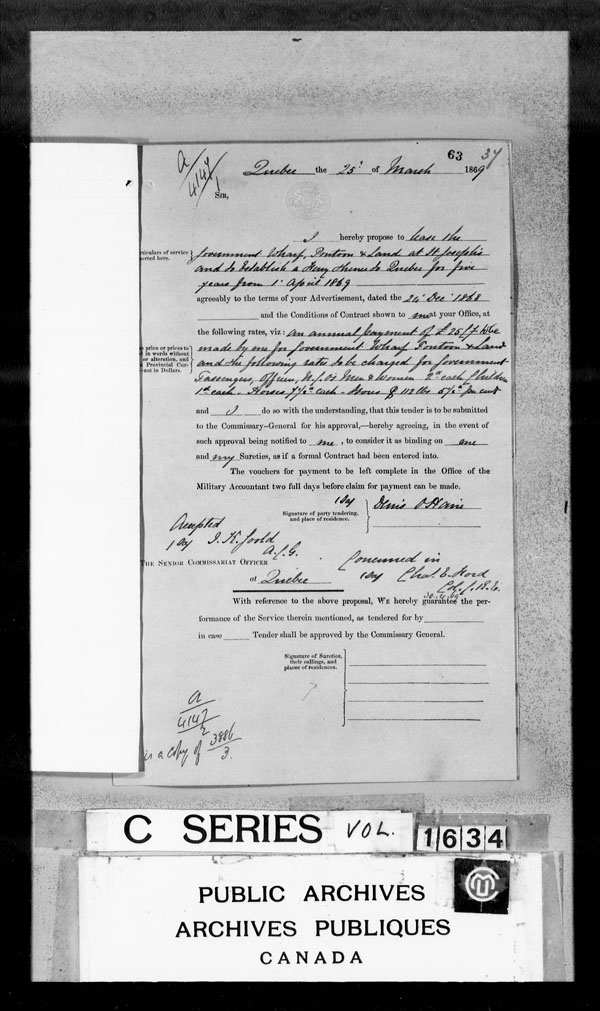 63 37
A/4147/1
Quebec the 25th of March 1869
Sir,
I hereby propose to lease the
Government Wharf, Pontoon & Land at St Joseph's
and to establish a Ferry thence to Quebec for five
years from 1st April 1869
agreeably to the terms of your Advertisement, dated the 24 Decr 1868
and the Conditions of Contract shown to me at your Office, at
the following rates, viz: an annual payment of £25/ to be
made by me for Government Wharf Pontoon & Land
and the following rates to be charged for Government
Passengers, Officers, N.C.Os Men & Women 2d each Children
1d each - Horses 7½d each - Stores 112 lbs per cwt
and I do so with the understanding, that this tender is to be submitted
to the Commissary-General for his approval,—hereby agreeing, in the event of
such approval being notified to me, to consider it as binding on me
and my Sureties, as if a formal Contract had been entered into.
The vouchers for payment to be left complete in the Office of the
Military Accountant two full days before claim for payment can be made.
Signature of party tendering,
and place of residence.
Denis O'Haire
Accepted
A.C.G.
The Senior Commissariat Officer
at Quebec
Concurred in
Chas. E. Ford
Col. C.R.E.
With reference to the above proposal, We hereby guarantee the per-
formance of the Service therein mentioned, as tendered for by
in case Tender shall be approved by the Commissary General.
Signature of Sureties,
their callings, and
places of residences.
A/4147/2
is a copy of 3886/3
C SERIES VOL. 1634
PUBLIC ARCHIVES
ARCHIVES PUBLIQUES
CANADA